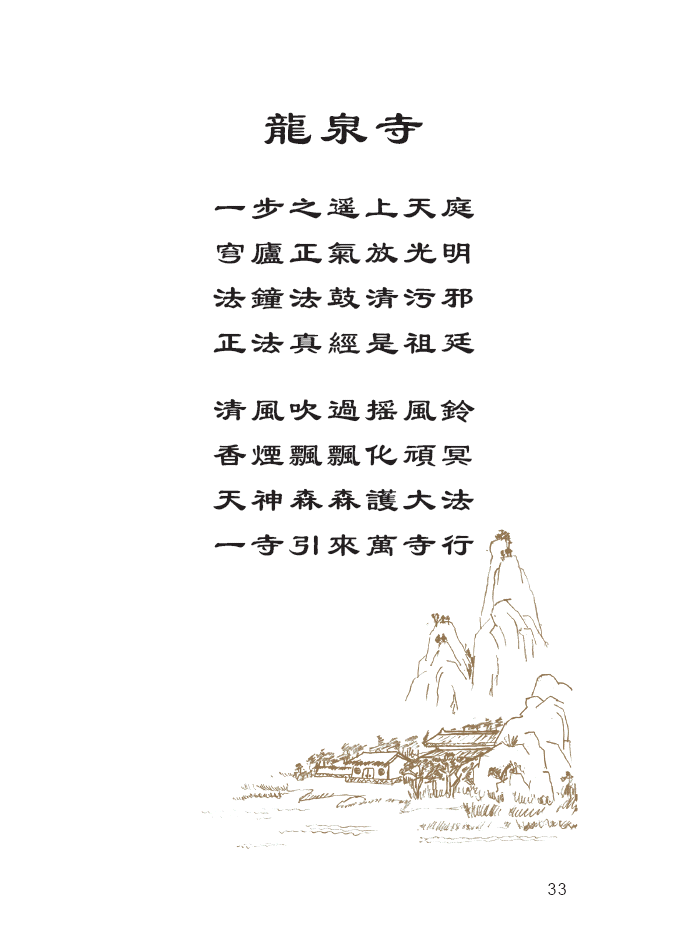 龍泉寺
一步之遥上天庭
穹廬正氣放光明
法鐘法鼓清污邪
正法真經是祖廷
清風吹過摇風鈴
香煙飄飄化頑冥
天神森森護大法
一寺引來萬寺行
33